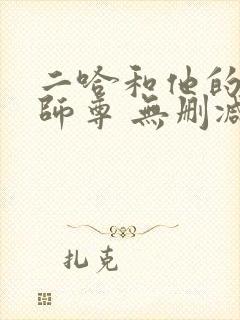 二哈和他的
師尊 無删减
扎克